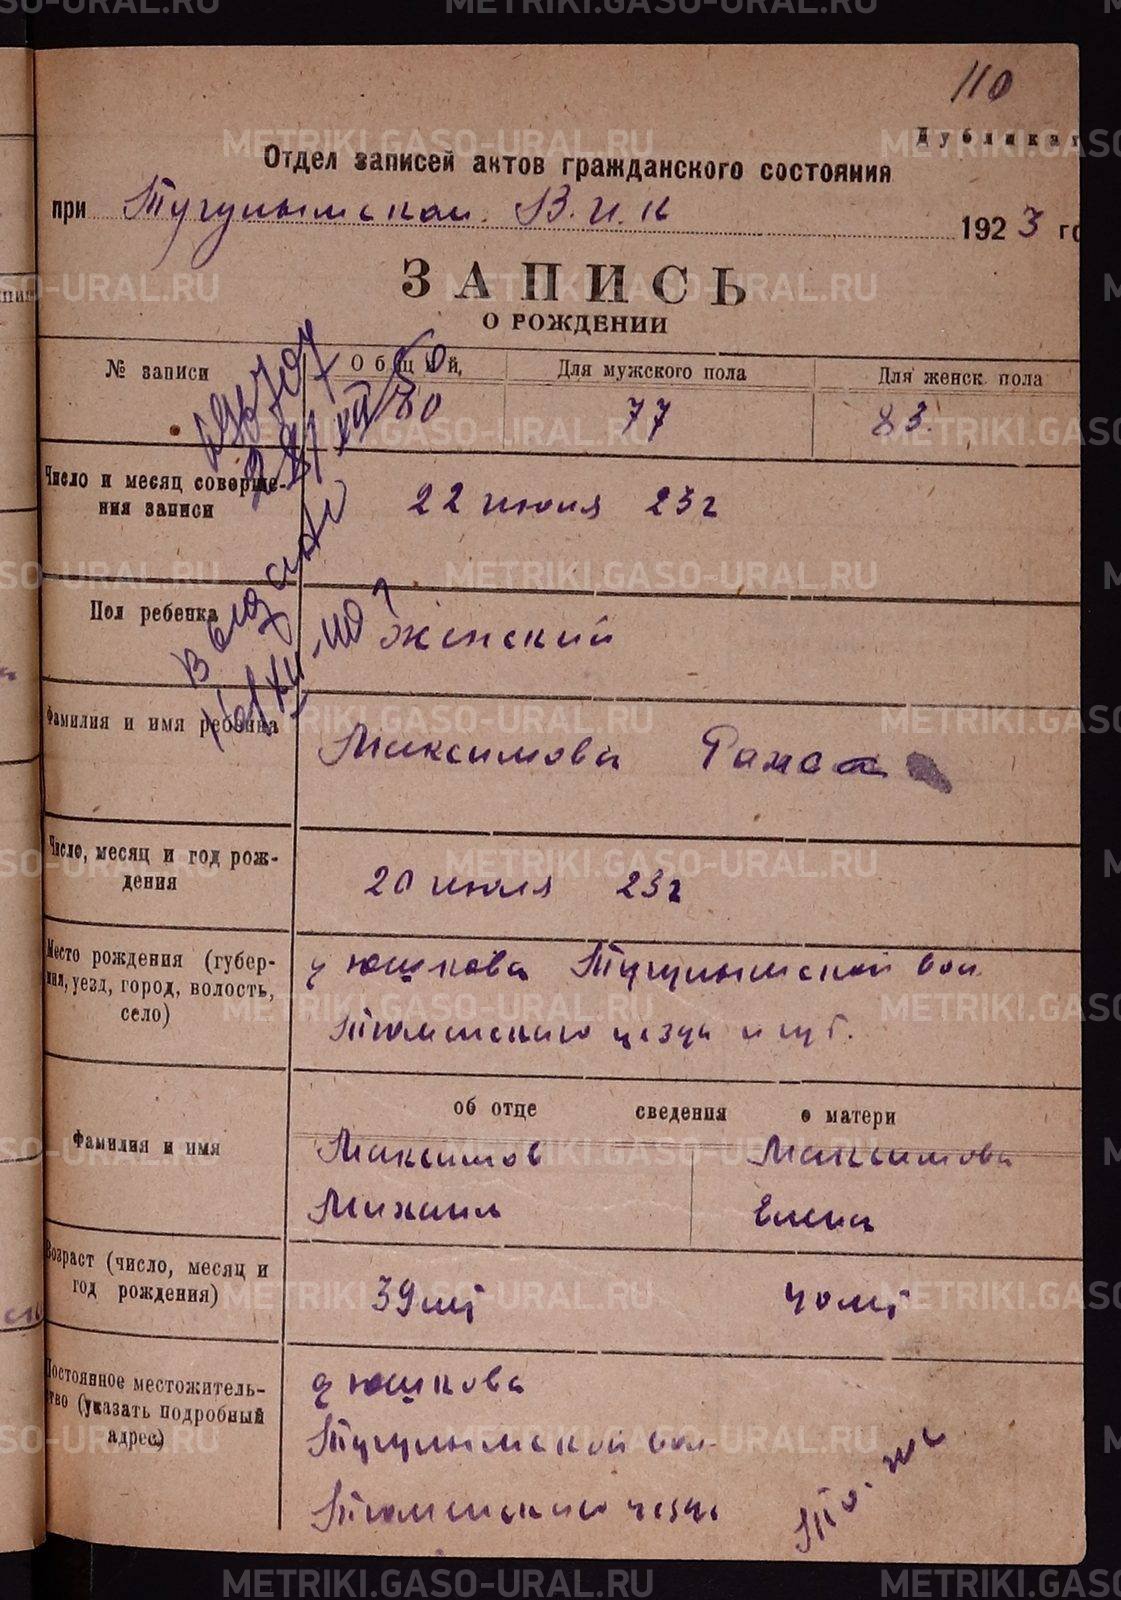 110
Дубликат
Отдел записей актов гражданского состояния
при Тугулымском В.И.К 1923 го
ЗАПИСЬ
О РОЖДЕНИИ
№ записи Общий, Для мужского пола Для женск. пола
80 77 83.
Число и месяц соверше-
ния записи
22 июля 23 г
Пол ребенка
женский
Фамилия и имя ребенка
Максимова
Число, месяц и год рож-
дения
20 июля 23 г
Место рождения (губер-
ния, уезд, город, волость,
село)
д Юшкова Тугулымской вол
Тюменского уезда и губ.
об отце сведения о матери
Фамилия и имя
Максимов Максимова
Михаил Елена
Возраст (число, месяц и
год рождения)
39 лет 40 лет
Постоянное местожитель-
ство (указать подробный
адрес)
д Юшкова
Тугулымской вол.
Тюменского уезда
то же
Выдано
METRIKI.GASO-URAL.RU